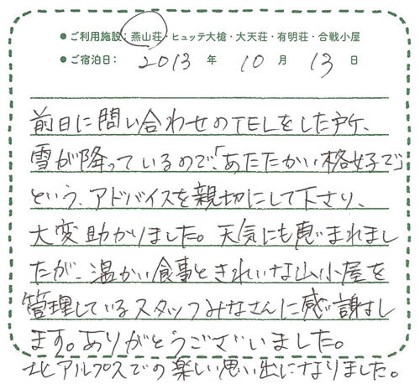 ● ご利用施設：燕山荘・ヒュッテ大槍・大天荘・有明荘・合戦小屋
● ご宿泊日：2013 年 10 月 13 日
前日に問い合わせのTELをした所、
雪が降っているので、「あたたかい格好で」
という、アドバイスを親切にして下さり、
大変助かりました。天気にも恵まれまし
たが、温かい食事ときれいな山小屋を
管理しているスタッフみなさんに感謝し
ます。ありがとうございました。
北アルプスでの楽しい思い出になりました。